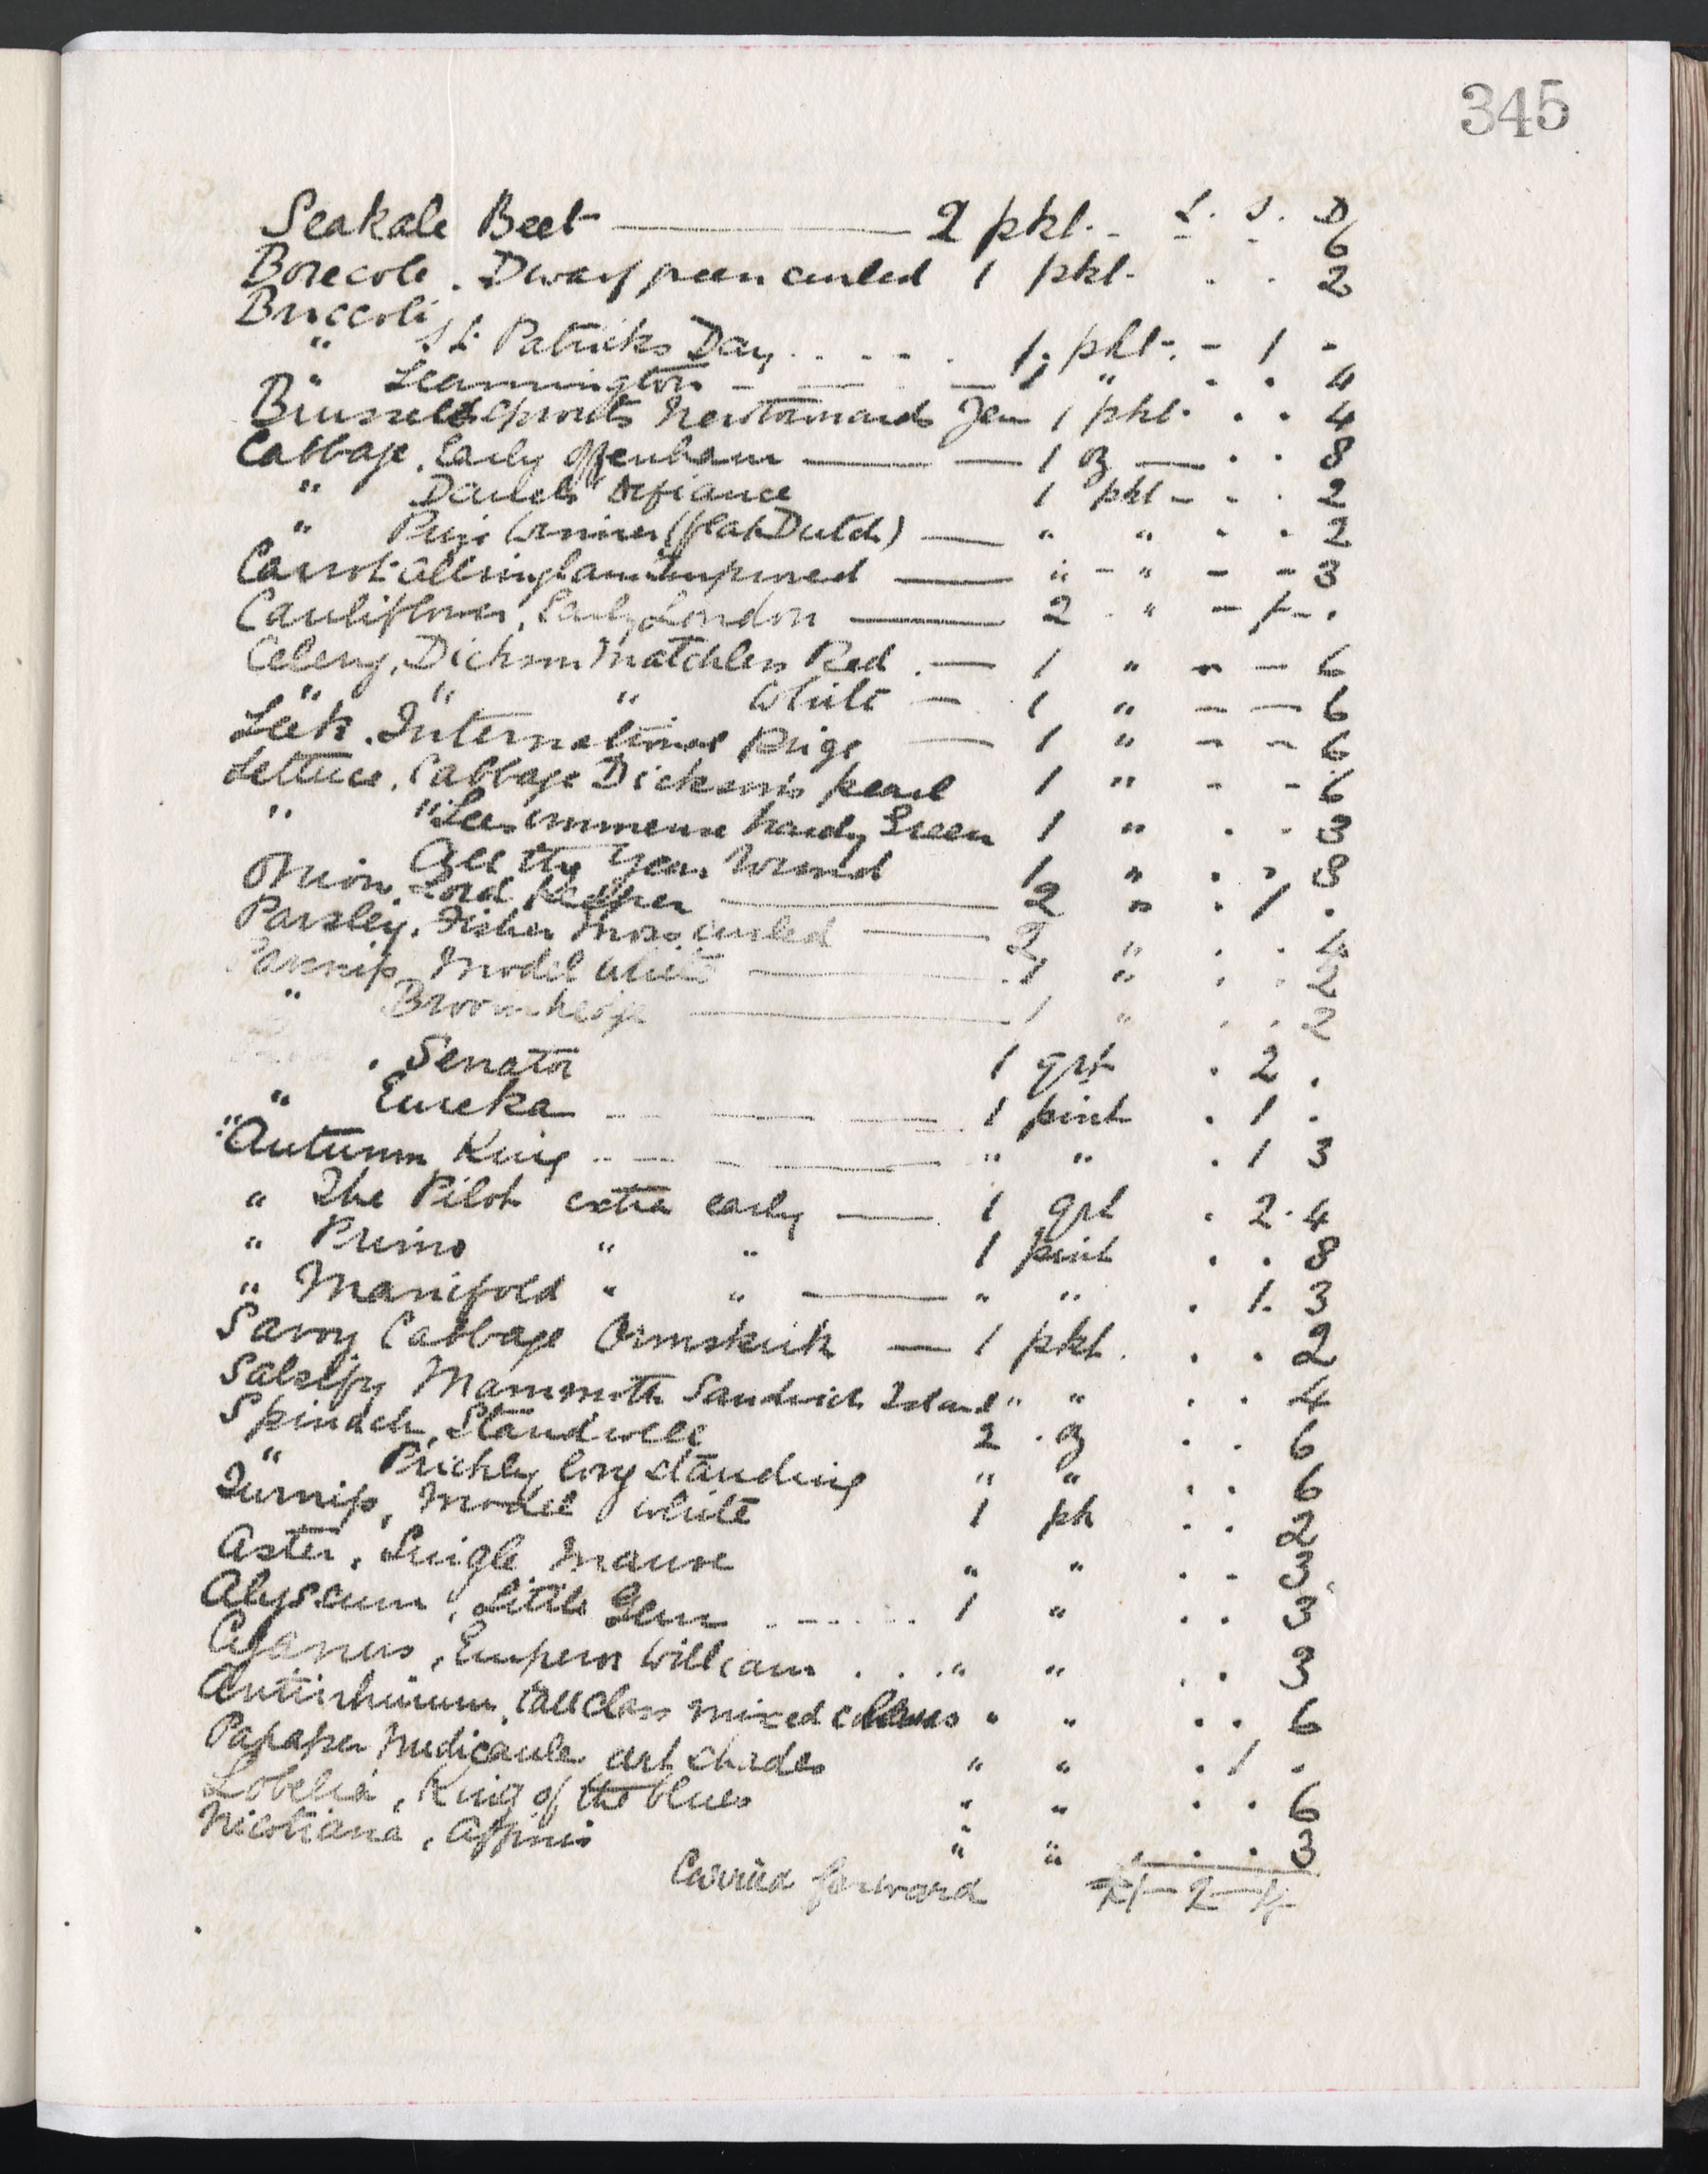 345
£. S. D
Seakale Beet — 2 pkt. - - - 6
Borecole . Dwarf green curled 1 pkt. . . 2
Broccoli
" St Patricks Day . . - - . 1 pkt. - 1 -
" Leamington - — - — 1 " . . 4
Brussels sprouts Newtownards Gem 1 pkt. . . 4
Cabbage . Early Offenham — — 1 oz — . . 8
" Daniels Defiance 1 pkt - - . 2
" Prize Winner (flat Dutch) — " " . . 2
Carrot Altringham Improved — " - " - - 3
Cauliflower, Early London — 2 . " - 1 - .
Celery, Dickson Matchless Red . — 1 " - - 6
" " " White — . 1 " - — 6
Leek . International Prize — 1 " - - 6
Lettuce, Cabbage Dickson's pearl 1 " - - 6
" " Lees immense hardy Green 1 " . . 3
All the Year Round 1 " . . 3
Onion, Lord Keeper — 2 " . 1 .
Parsley. Fisher Moss curled — 2 " . . 4
Parsnip Model White — . 1 " . . 2
" Broomhedge — 1 " . . 2
. Senator 1 qrt . 2 .
" Eureka - - — — 1 pint . 1 .
" Autumn King . . - - - — " " . 1 3
" The Pilot extra early — . 1 qrt . 2 . 4
" Primo " " 1 pint . . 8
" Manifold " " — " " . 1. 3
Savoy Cabbage Ormskirk — 1 pkt . . . 2
Salsify Mammoth Sandwich Island " " . . 4
Spinach, Standwell 2 . oz . . 6
" Prickly long standing " " . . 6
Turnip, Model White 1 pk . . 2
Aster, Single Mauve " " . - 3
Alyssum, Little Gem . - - . . . 1 " . . 3
Cyanus, Emperor William . . . " " . . 3
Antirhinum, tall class mixed colours " " . . 6
Papaper Nudicaule art shades " " . 1 .
Lobelia, King of the blues " " . . 6
Nicotiana, Affinis " " . . . 3
Carried forward £1 - 2 - 4